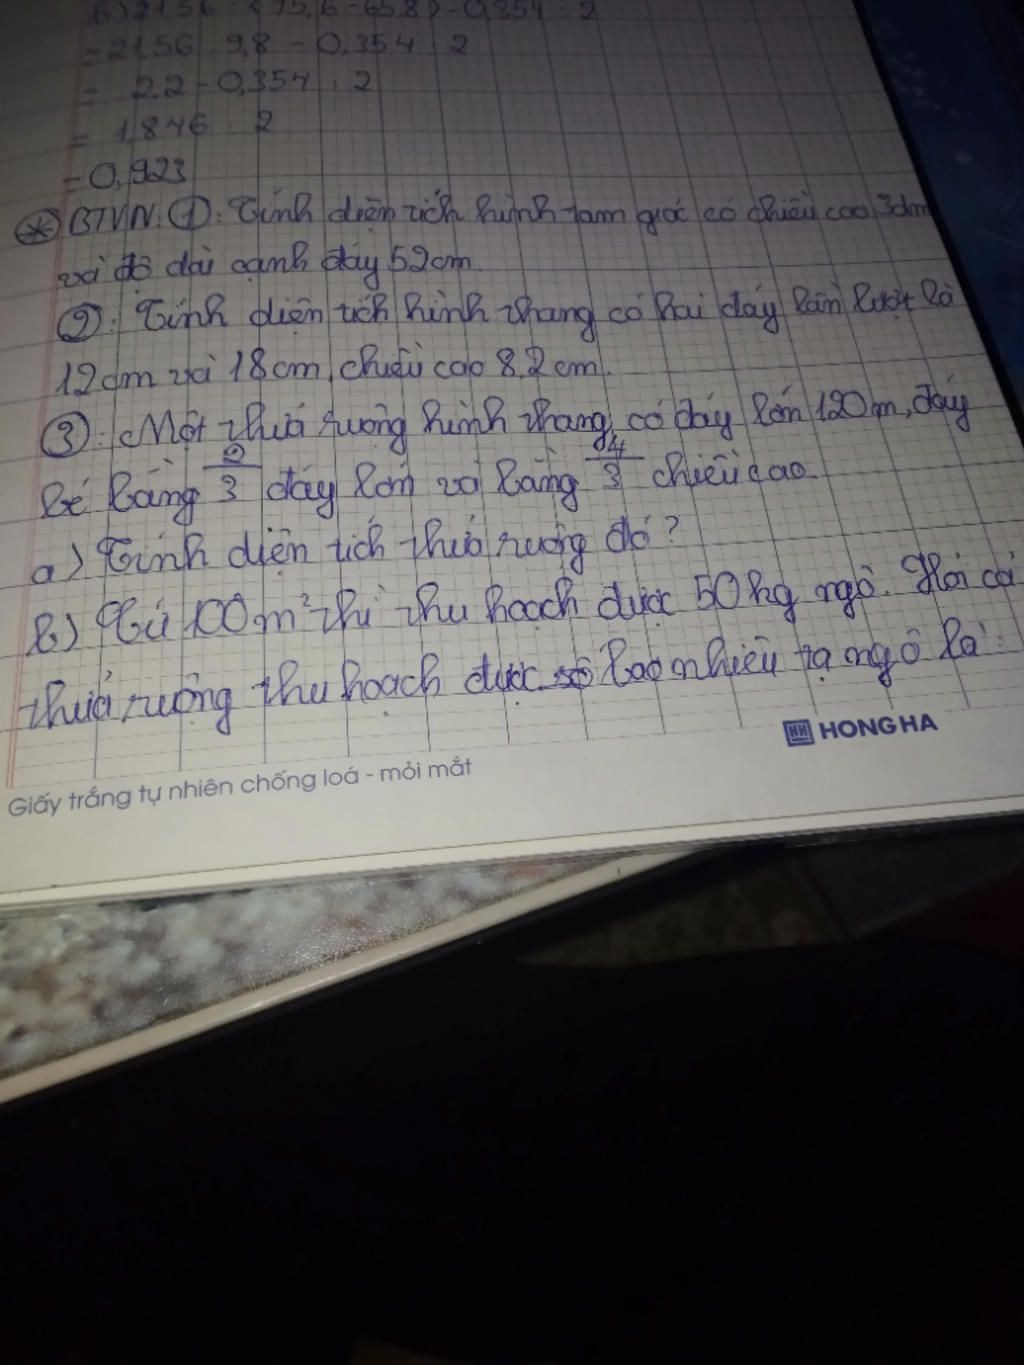 b) 21,56 : (75,6 - 65,8) - 0,354 : 2
= 21,56 : 9,8 - 0,354 : 2
= 2,2 - 0,354 : 2
= 1,846 : 2
= 0,923
* BTVN: 1: Tính diện tích hình tam giác có chiều cao 3dm
và độ dài cạnh đáy 52cm.
2: Tính diện tích hình thang có hai đáy lần lượt là
12cm và 18cm, chiều cao 8,2cm.
3: Một thửa ruộng hình thang có đáy lớn 120m, đáy
bé bằng 2/3 đáy lớn và bằng 4/3 chiều cao.
a) Tính diện tích thửa ruộng đó?
b) Cứ 100m² thì thu hoạch được 50kg ngô. Hỏi cả
thửa ruộng thu hoạch được số bao nhiêu tạ ngô là:
HH HONG HA
Giấy trắng tự nhiên chống loá - mỏi mắt